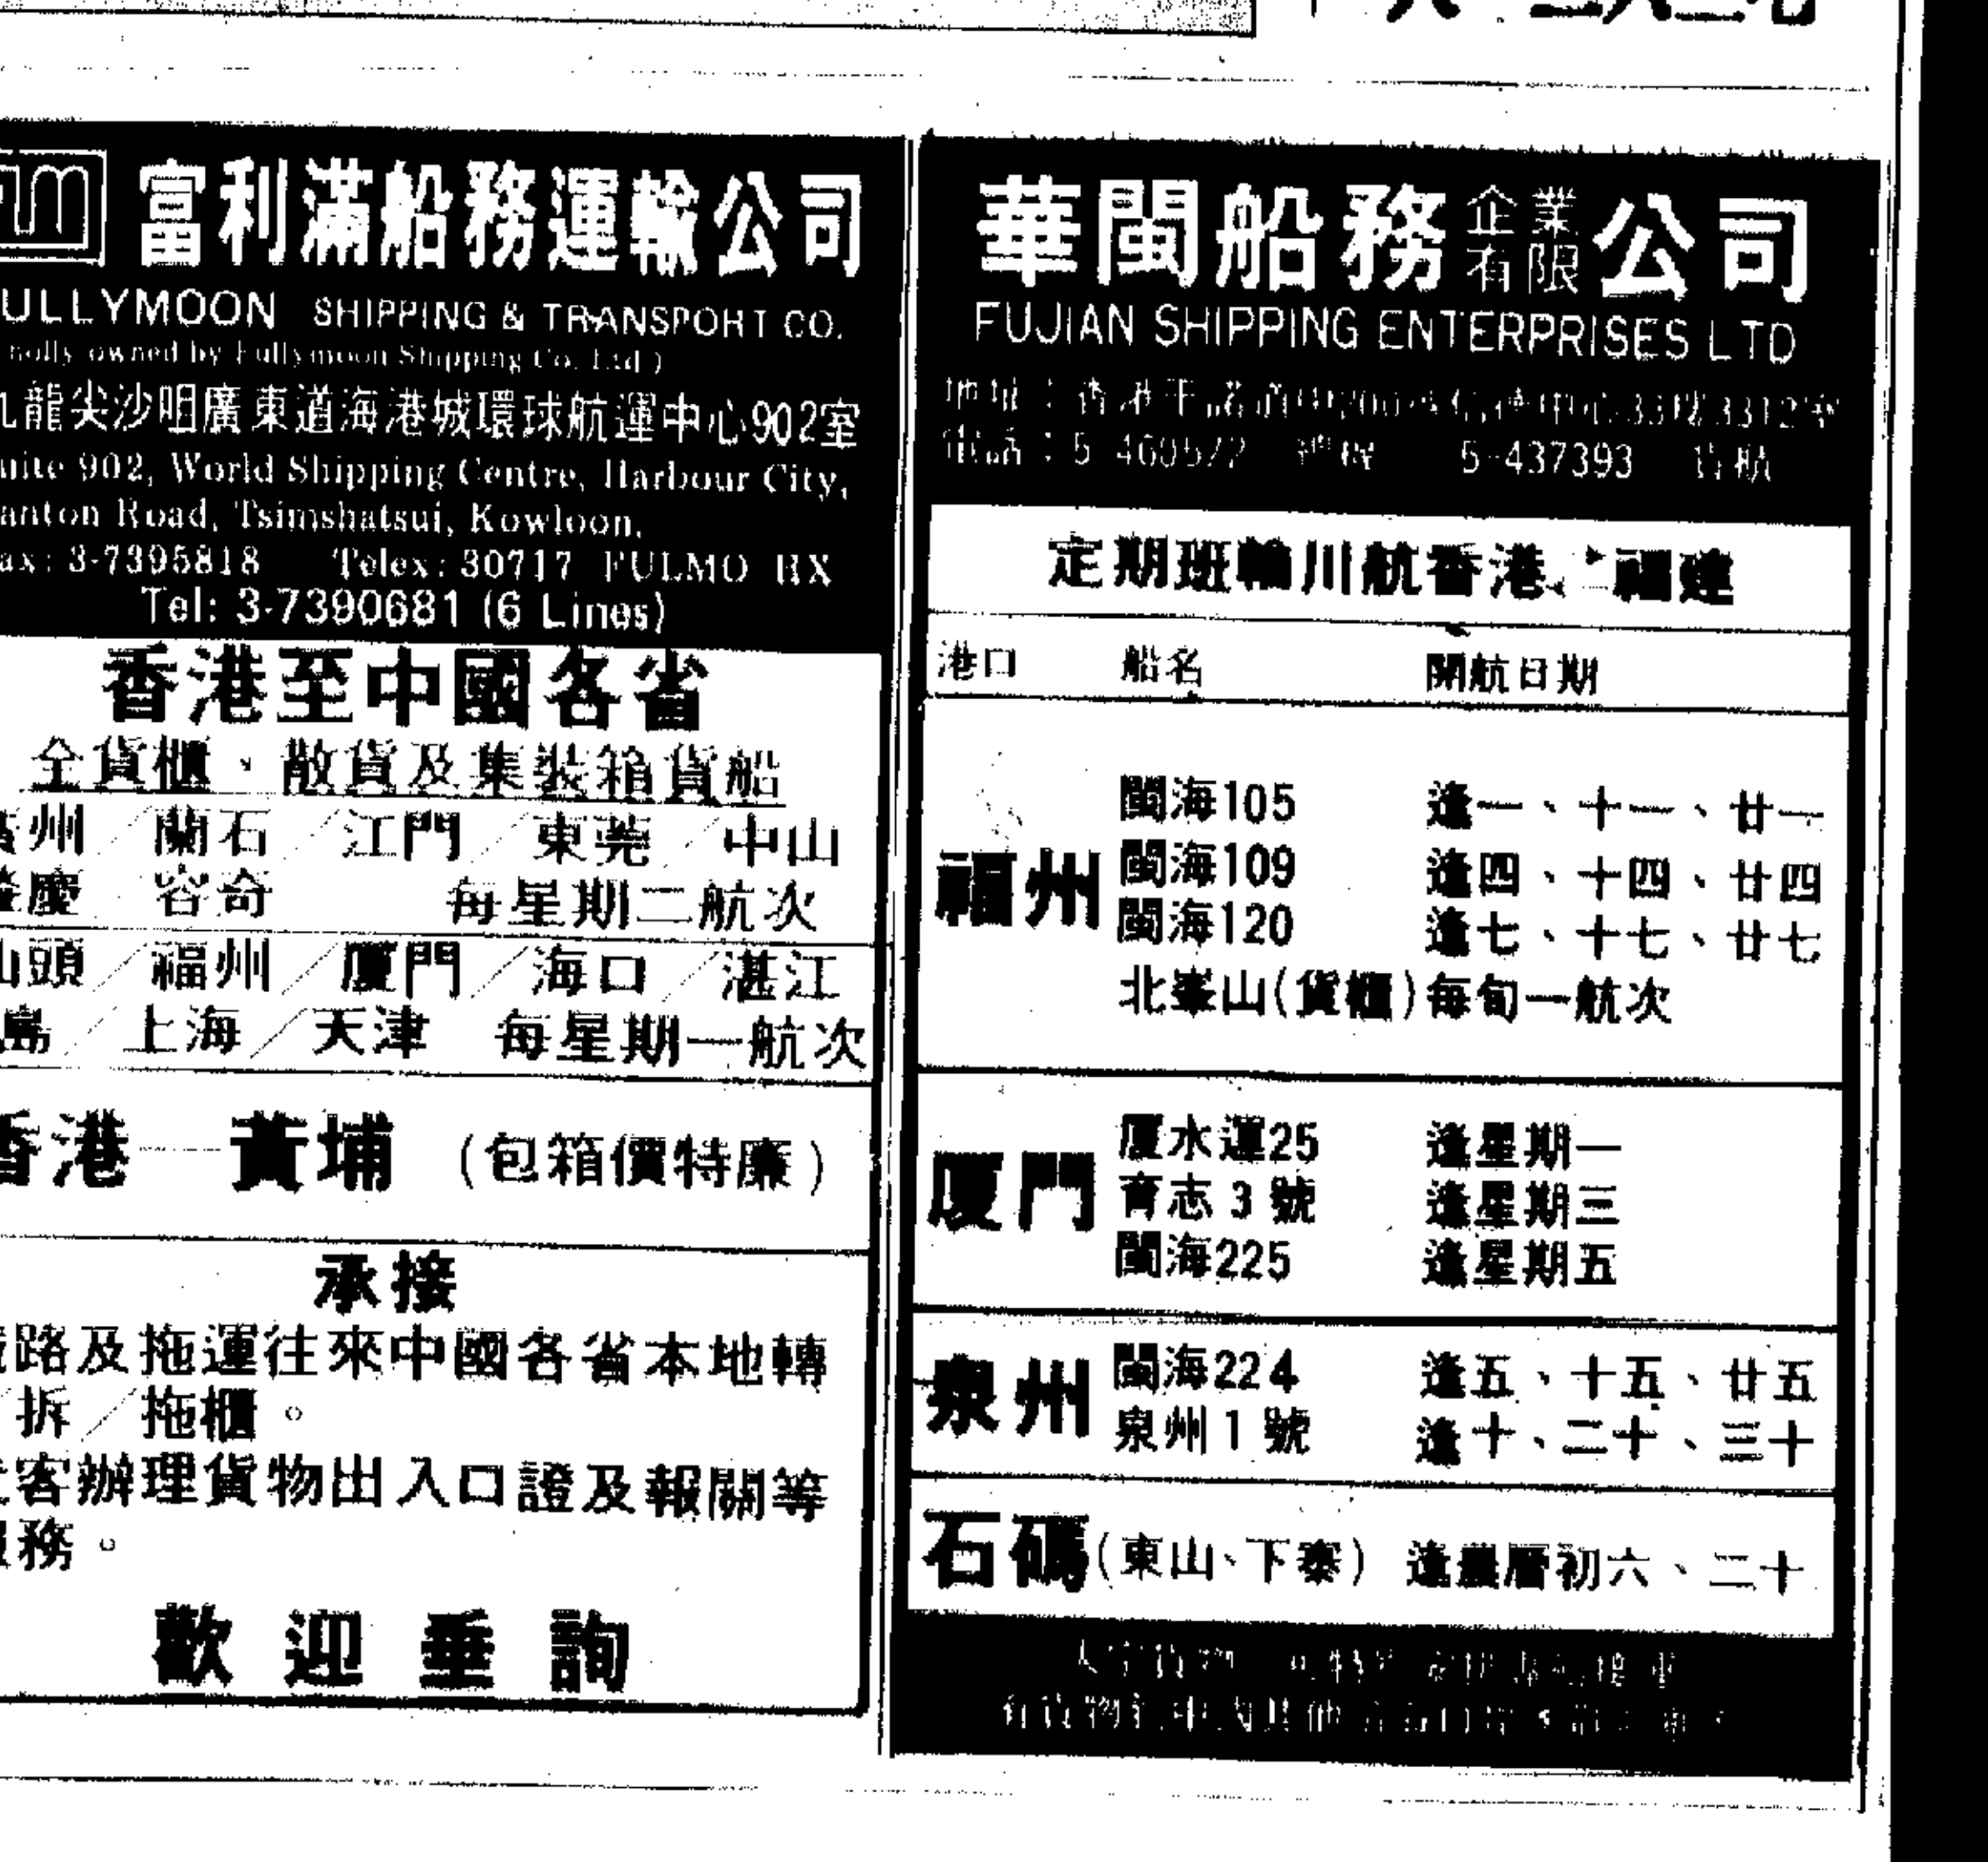 富利滿船務運輸公司
ULLYMOON SHIPPING & TRANSPORT CO.
owned by Fullymoon Shipping Co. Ltd )
龍尖沙咀廣東道海港城環球航運中心902室
902, World Shipping Centre, Harbour City,
anton Road, Tsimshatsui, Kowloon,
ax: 3-7395818 Telex: 30717 FULMO HX
Tel: 3-7390681 (6 Lines)
香港至中國各省
全貨櫃、散貨及集裝箱貨船
州／蘭石／江門／東莞／中山
慶 容奇 每星期二航次
頭／福州／廈門／海口／湛江
島／上海／天津 每星期一航次
香港—黃埔 (包箱價特廉)
承接
路及拖運往來中國各省本地轉
拆／拖櫃。
客辦理貨物出入口證及報關等
務。
歡迎垂詢
華閩船務企業有限公司
FUJIAN SHIPPING ENTERPRISES LTD
地址：香港干諾道中200號信德中心33樓3312室
電話：5-460577 5-437393
定期班輪川航香港、福建
港口 船名 開航日期
福州
閩海105 逢一、十一、廿一
閩海109 逢四、十四、廿四
閩海120 逢七、十七、廿七
北峯山(貨櫃) 每旬一航次
廈門
廈水運25 逢星期一
育志3號 逢星期三
閩海225 逢星期五
泉州
閩海224 逢五、十五、廿五
泉州1號 逢十、二十、三十
石碼(東山、下寨) 逢農曆初六、二十